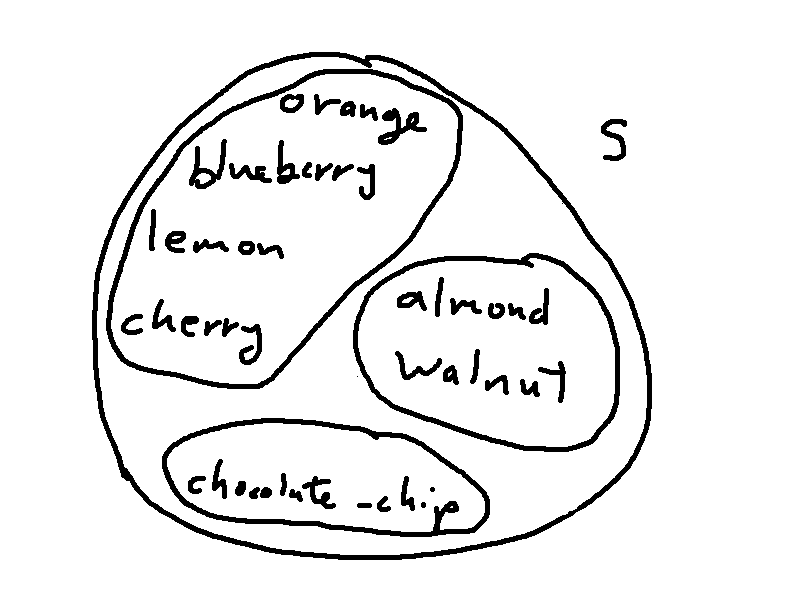 orange
S
blueberry
lemon
cherry
almond
walnut
chocolate-chip